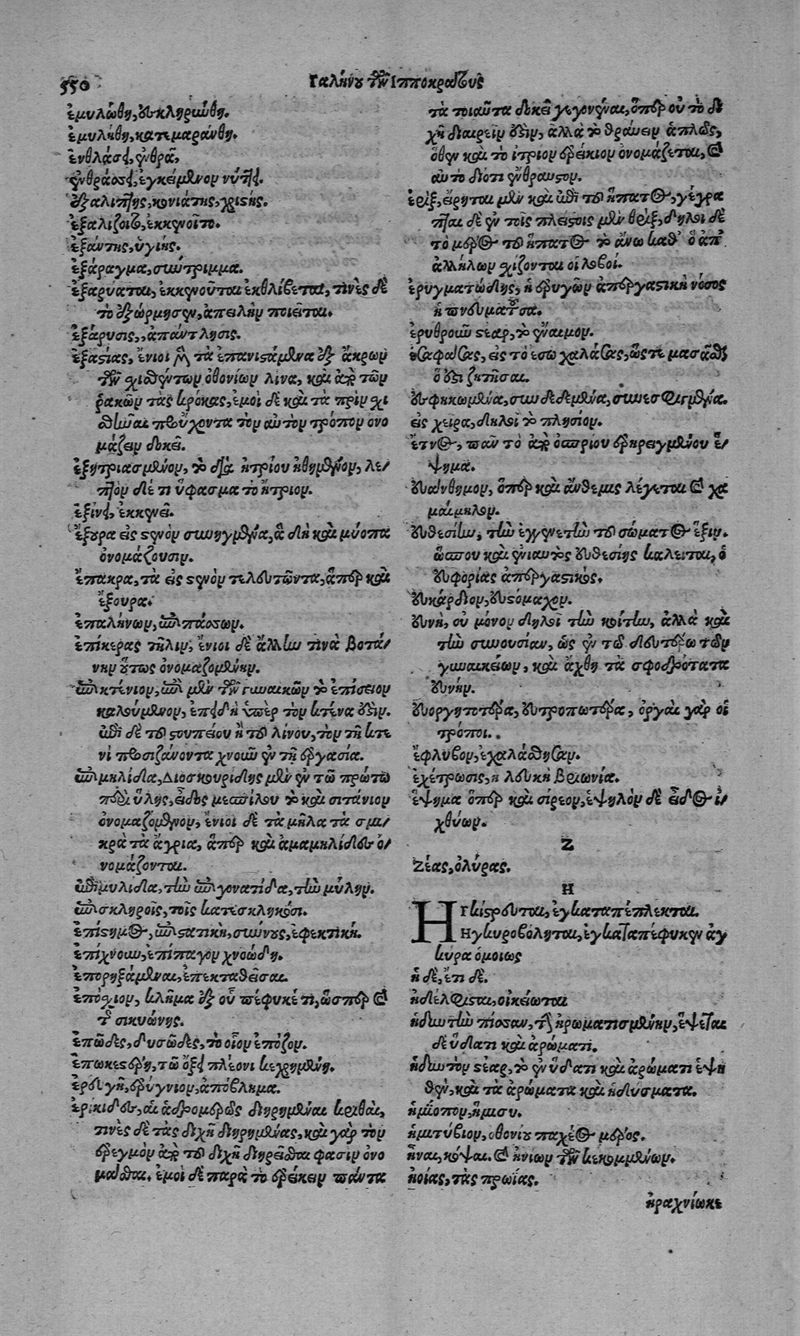 550
Γαλήνου τῶν Ἱπποκράτους
ἐμυλώθη, ἐσκληρώθη.
ἐμυλήθη, κατεμαράνθη.
ἐνθλάσει, ἐνθρᾷ,
ἐνθράσσει, ἐγκείμενον νύττει.
ἐξαλίπτης, κονιάτης, χρίστης.
ἐξαλίζοιτο, ἐκκενοῖτο.
ἐξάντης, ὑγιής.
ἐξάραγμα, σύντριμμα.
ἐξαρύαται, ἐκκενοῦται ἐκθλίβεται, τινὲς δὲ
τὸ ἐξώρμησεν, ἀπειλὴν ποιεῖται.
ἐξάρυσις,, ἀπάντλησις.
ἐξαστίας, ἔνιοι μὲν τὰ ἐπανιστάμενα ἐξ ἄκρων
τῶν σχισθέντων ὀθονίων λίνα, καὶ ἀπὸ τῶν
ῥακῶν τὰς κρόκας, ἐμοὶ δὲ καὶ τὰ πρὶν σχι
σθῆναι προὔχοντα τὸν αὐτὸν τρόπον ὀνο
μάζειν δοκεῖ.
ἐξητριασμένον, τὸ διὰ ἠτρίου ἠθημένον, λε/
πτὸν δέ τι ὕφασμα τὸ ἤτριον.
ἐξίνει, ἐκκενεῖ.
ἔξουρα εἰς στενὸν συνηγμένα, ἃ δὴ καὶ μύουρα
ὀνομάζουσιν.
ἔπακρα, τὰ εἰς στενὸν τελευτῶντα, ἅπερ καὶ
ἔξουρα.
ἐπίκερας τῆλιν, ἔνιοι δὲ ἄλλην τινὰ βοτά/
νην οὕτως ὀνομαζομένην.
ἐπικτένιον, ἐπὶ μὲν τῶν γυναικῶν τὸ ἐπίσειον
καλούμενον, ἐπειδὴ ὑπὲρ τὸν κτένα ἐστίν.
ἐπὶ δὲ τοῦ στυπείου ἢ τοῦ λίνου, τὸν τῇ κτε
νὶ προσιζάνοντα χνοῦν ἐν τῇ ἐργασίᾳ.
ἐπιμηλίδα, Διοσκουρίδης μὲν ἐν τῷ πρώτῳ
περὶ ὕλης, εἶδος μεσπίλου τὸ καὶ σιτάνιον
ὀνομαζόμενον, ἔνιοι δὲ τὰ μῆλα τὰ σμι/
κρὰ τὰ ἄγρια, ἅπερ καὶ ἁμαμηλίδες ὀ/
νομάζονται.
ἐπιμυλίδα, τὴν ἐπιγονατίδα, τὴν μύλην.
ἐπισκληροῖς, τοῖς κατεσκληκόσι.
ἐπίχνουν, ἐπίπαγον χνοώδη.
ἐπορηξάμεναι, ἐπεκταθεῖσαι.
ἐπόσχιον, κλῆμα ἐξ οὗ πέφυκέ τι, ὥσπερ καὶ
τῆς σικυώνης.
ἐπῶδες, δυσῶδες, τὸ οἷον ἐπόζον.
ἐρευγὴ, ἐρύγνιον, ἀπόβλημα.
ἐρικίδες, αἱ ἁδρομερῶς διῃρημέναι κριθαὶ,
τινὲς δὲ τὰς δίχη διῃρημένας, καὶ γὰρ τὸν
ἐρεγμὸν ἀπὸ τοῦ δίχη διῃρεῖσθαι φασὶν ὀνο
μάσθαι. ἐμοὶ δὲ παρὰ τὸ ἐρέκειν πάντα
τὰ τοιαῦτα δοκεῖ γεγονέναι, ὅπερ οὐ τὸ δί
χῆ διαιρεῖν ἐστιν, ἀλλὰ τὸ θραύειν ἁπλῶς,
ὅθεν καὶ τὸ ἴτριον ἐρέκιον ὀνομάζεται, καὶ
αὐτὸ διότι εὔθραυστον.
ἔριξ, εἴρηται μὲν καὶ ἐπὶ τοῦ ἥπατος, γέγρα
πται δὲ ἐν τοῖς πλείστοις μὲν θρίξ, δηλοῖ δὲ
τὸ μέρος τοῦ ἥπατος τὸ ἄνω καθ' ὃ ἀπ'
ἀλλήλων σχίζονται οἱ λοβοί.
ἐρυγματώδης, ἡ ἐρυγῶν ἀπεργαστικὴ νόσος
ἢ πνευματοῦσα.
ἐρυθροῦν στέαρ, τὸ ἔναιμον.
ἐσαφάσας, εἰς τὸ ἔσω χαλάσας, ὥστε μασᾶσθαι
ὅ ἐστι ζητῆσαι.
ἐσφηκωμένα, συνδεδεμένα, συνεσφιγμένα.
ἐς χεῖρα, δηλοῖ τὸ πλησίον.
ἔτνος, πᾶν τὸ ἀπὸ ὀσπρίου ἐρηρειγμένου ἕ/
ψημα.
εὐάνθεμον, ὅπερ καὶ ἄνθεμις λέγεται καὶ χα
μαίμηλον.
εὐθεσίην, τὴν ἐγγενετὴν τοῦ σώματος ἕξιν.
ὥσπου καὶ ἐνιαυτὸς εὐθεσίης καλεῖται, ὁ
εὐφορίας ἀπεργαστικός.
εὐκάρδιον, εὐστόμαχον.
εὐνὴ, οὐ μόνον δηλοῖ τὴν κοίτην, ἀλλὰ καὶ
τὴν συνουσίαν, ὡς ἐν τῷ δευτέρῳ τῶν
γυναικείων, καὶ ἄχθη τὰ σφοδρότατα
εὐνήν.
εὐοργητοτέρα, εὐτροπωτέρα, ὀργαὶ γὰρ οἱ
τρόποι..
ἐχέτρωσις, ἡ λευκὴ βρυωνία.
ἕψημα ὅπερ καὶ σίρεον, ἑψηλὸν δὲ εἶδος ἰ/
χθύων.
Ζ
Ζέας, ὀλύρας.
Η
Ηγκίστρευται, ἐγκαταπέπλεκται.
Ηγκυροβόληται, ἐγκαταπέφυκεν ἀγ
κύρα ὁμοίως
ἠ δὲ, ἔτι δέ.
ἠδέλφισται, οἰκείωται
ἡδεῖαν τὴν πίσσαν, τὴν ἠρωματισμένην, ἕψεται
δὲ ὕδατι καὶ ἀρώματι.
ἡδεῖαν τὸν στέαρ, τὸ ἐν ὕδατι καὶ ἀρώματι ἑψη
θὲν, καὶ τὰ ἀρώματα καὶ ἡδύσματα.
ἡμίοπον, ἥμισυ.
ἡμιτύβιον, ὀθονίου παχέος μέρος.
ἦναι, κόψαι. καὶ ἤνιων τῶν κεκομμένων.
ἠοίας, τὰς πρωίας.
ἠραχνίωκε